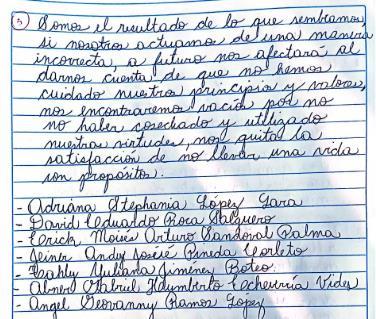 5 Somos el resultado de lo que sembramos,
si nosotros actuamos de una manera
incorrecta, a futuro nos afectará, al
darnos cuenta de que no hemos
cuidado nuestros principios y valores,
nos encontraremos vacíos por no
no haber cosechado y utilizado
nuestras virtudes, nos quita la
satisfacción de no llevar una vida
con propósitos.
- Adriána Stephania López Lara
- David Eduardo Roca Salguero
- Erick Moisés Arturo Sandoval Palma
- Jeiner Andy Josué Pineda Corleto
- Yuliana Jiménez Boteo
- Abner Gabriel Humberto Echeverría Vides
- Angel Geovanny Ramos López